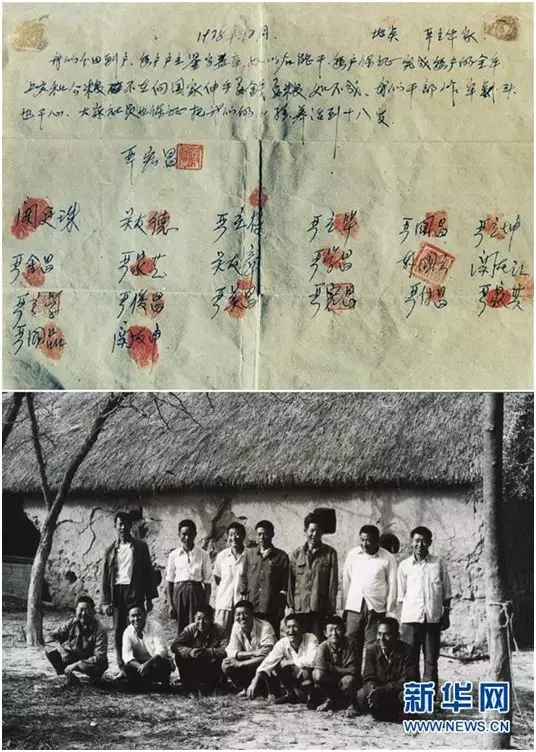 1978年12月 地点 严立华家
我们分田到户,每户户主签字盖章,如以后能干,每户保证完成每户的全年
上交和公粮 不在向国家伸手要钱要粮,如不成,我们干部作牢刹头
也干心,大家社员也保证把我们的小孩养活到十八岁
严宏昌
关廷珠 关友德 严立符 严立华 严国昌 严立坤
严金昌 严家芝 关友章 严学昌 韩国云 关友江
严立学 严俊昌 严美昌 严宏昌 严付昌 严家其
严国品 关友申
新华网
WWW.NEWS.CN